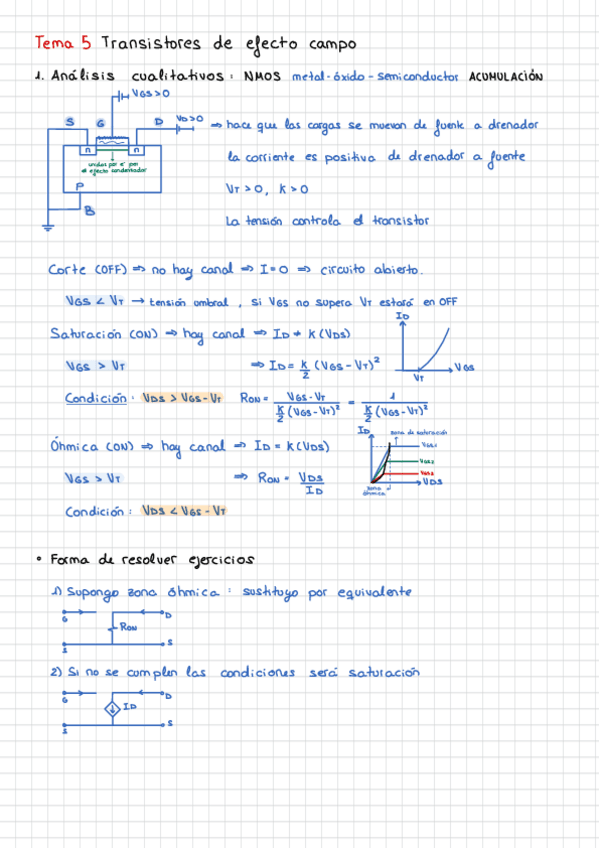 Tema 5 Transistores de efecto campo
1. Análisis cualitativos: NMOS metal-óxido-semiconductor ACUMULACIÓN
VGS>0
S G D VD>0
n n
unidas por e⁻ por
el efecto condensador
P
B
⇒ hace que las cargas se muevan de fuente a drenador
la corriente es positiva de drenador a fuente
VT > 0, K > 0
La tensión controla el transistor
Corte (OFF) ⇒ no hay canal ⇒ I=0 ⇒ circuito abierto.
VGS < VT → tensión umbral, si VGS no supera VT estará en OFF
Saturación (ON) ⇒ hay canal ⇒ ID ≠ K(VDS)
VGS > VT ⇒ ID = K/2 (VGS - VT)²
ID
VGS
VT
Condición: VDS > VGS - VT RON = VGS - VT / K/2 (VGS - VT)² = 1 / K/2 (VGS - VT)²
Óhmica (ON) ⇒ hay canal ⇒ ID = K(VDS)
VGS > VT ⇒ RON = VDS / ID
Condición: VDS < VGS - VT
ID
zona de saturación
VGS1
VGS2
VGS3
VDS
zona
óhmica
• Forma de resolver ejercicios
1) Supongo zona óhmica: sustituyo por equivalente
G D
RON
S
2) Si no se cumplen las condiciones será saturación
G D
ID
S